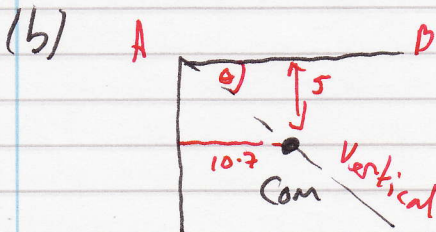 (b)
A B
θ 5
10.7
Com
Vertical